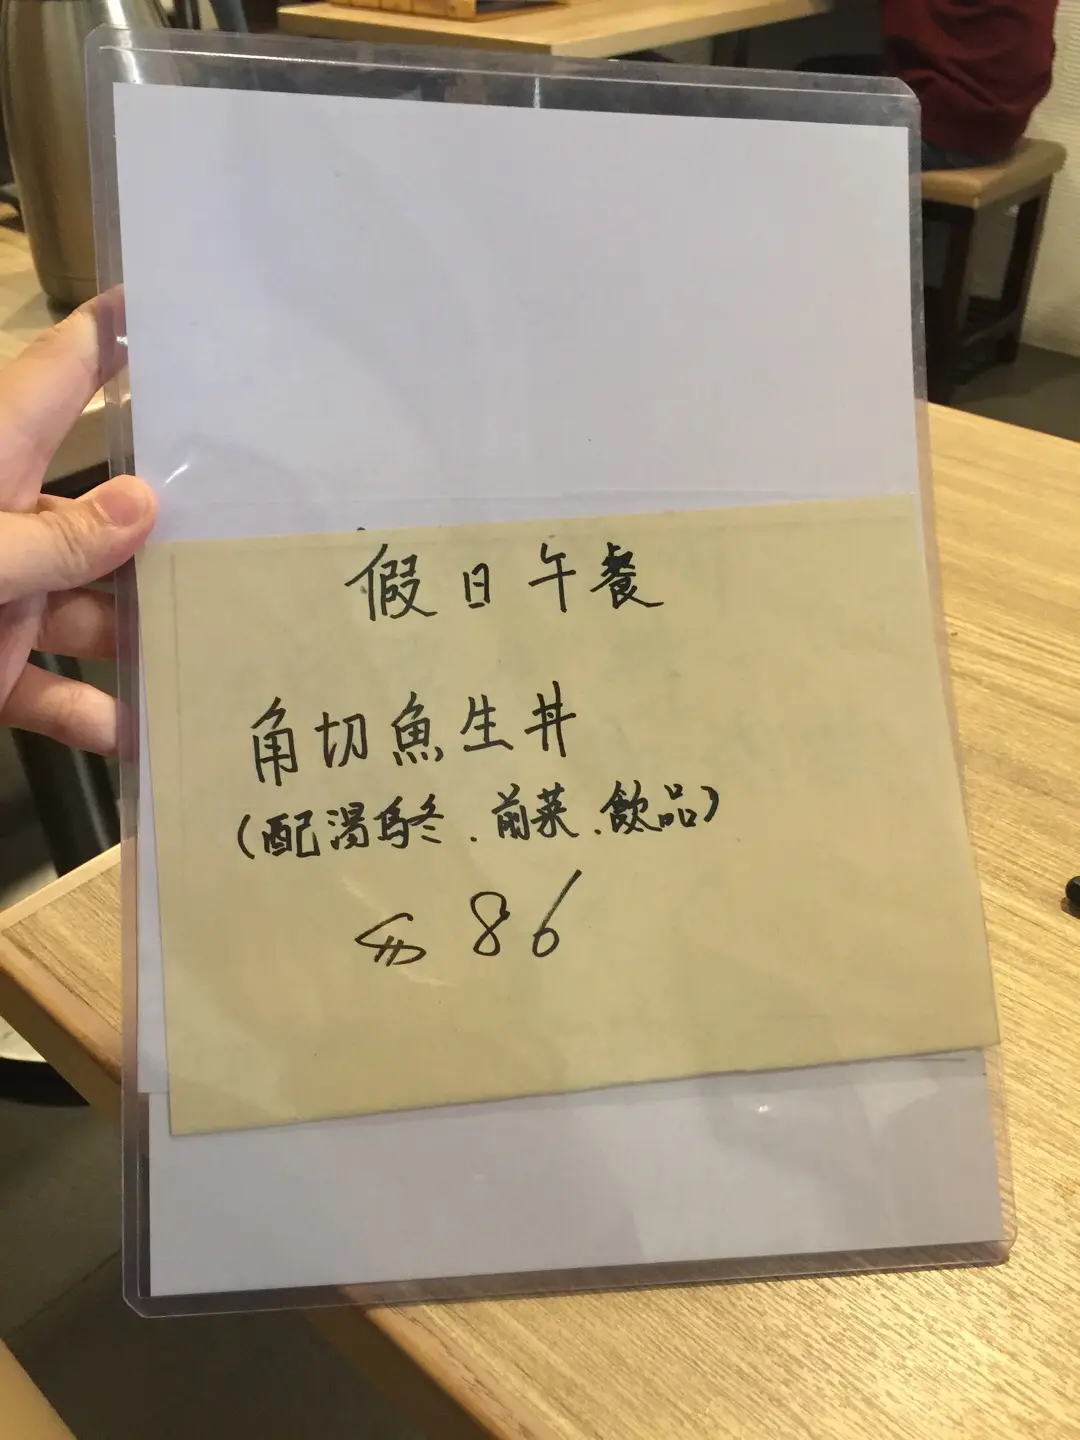 假日午餐
角切魚生丼
(配湯烏冬、前菜、飲品)
$ 86